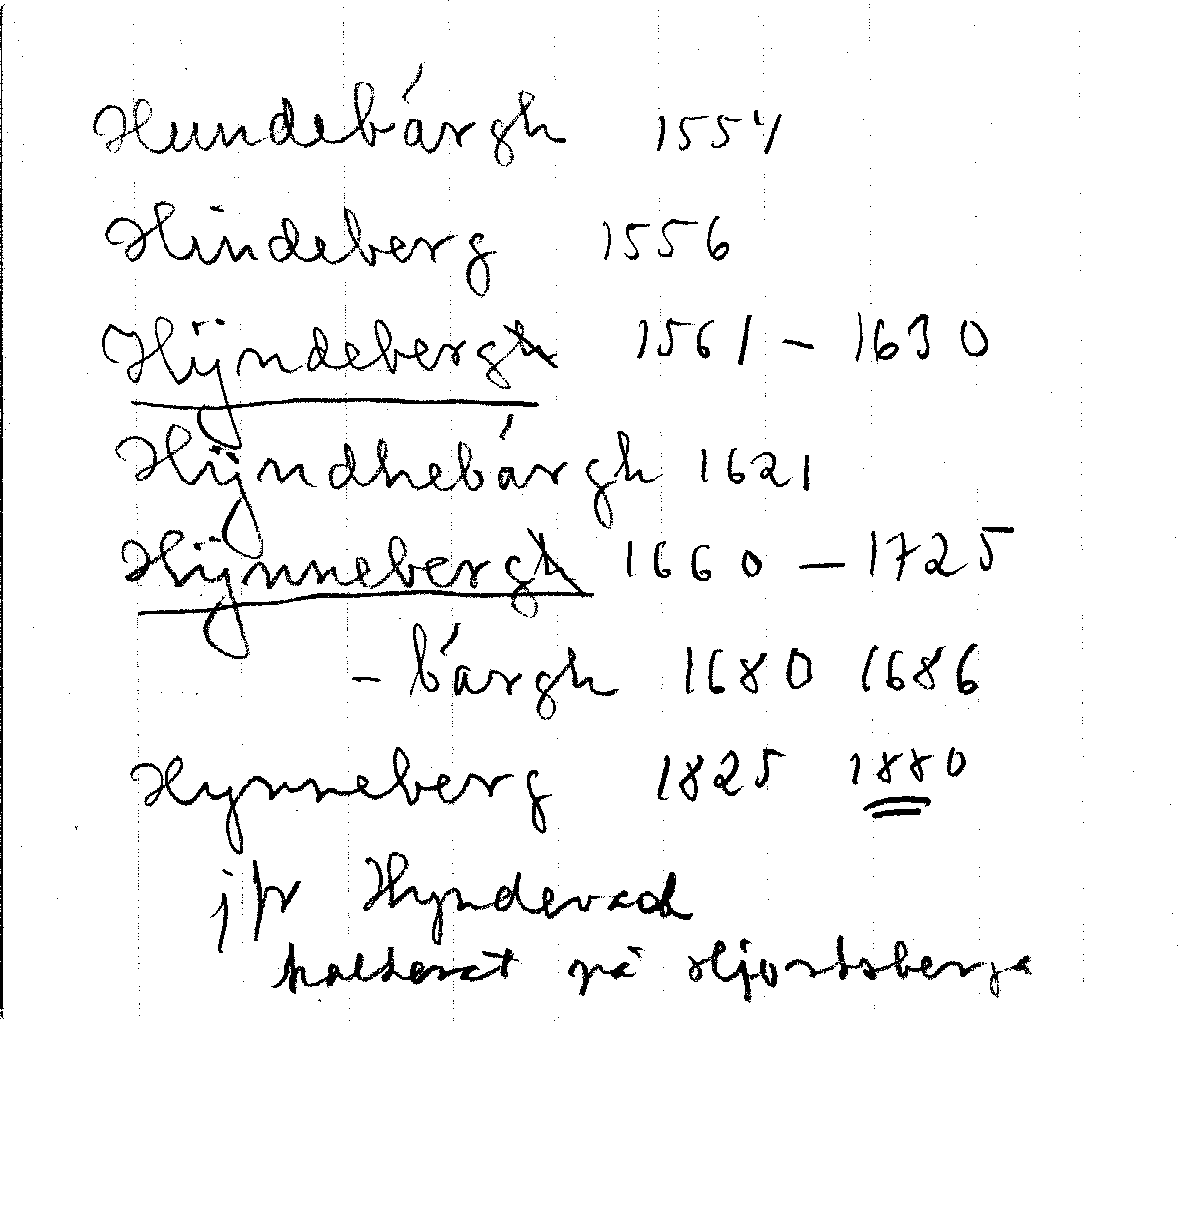 Hundebárgh 1554
Hindeberg 1556
Hÿndebergh 1561 – 1630
Hÿndhebárgh 1621
Hÿnnebergh 1660 – 1725
– bárgh 1680 1686
Hynneberg 1825 1880
jfr Hyndevad
på Hjortsberga